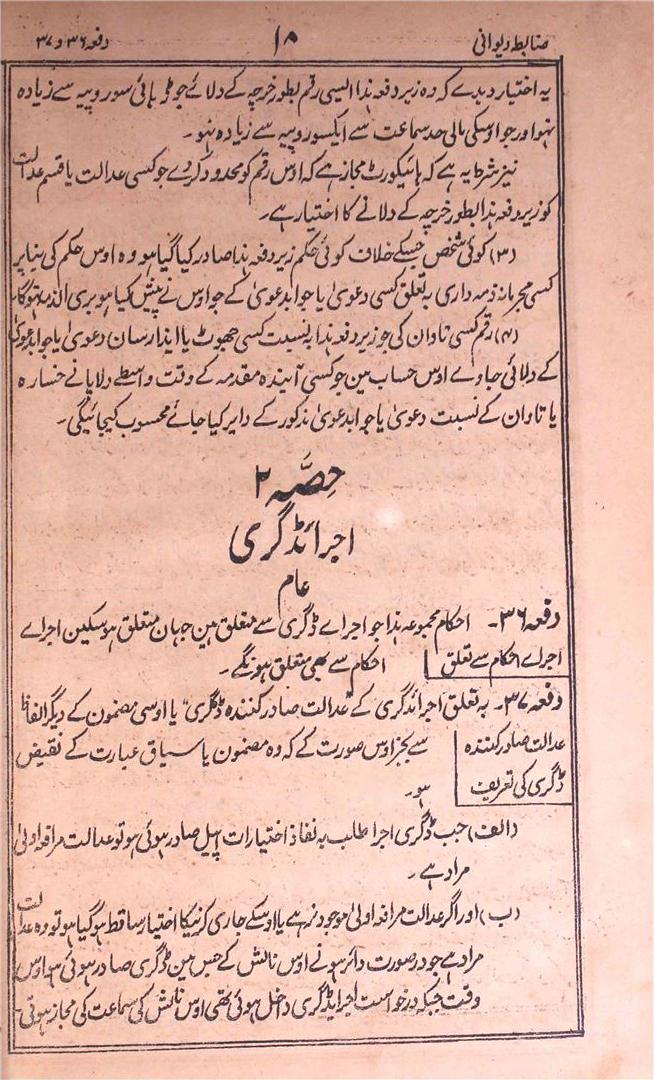 ضابطہ دیوانی ١٨ دفعہ ٣٦ و ٣٧
یہ اختیار دیدے کہ وہ زیر دفعہ ہذا ایسی رقم بطور خرچہ کے دلائے جو پانسو روپیہ سے زیادہ
نہو اور جو اوسکی مالی حد سماعت سے ایکسو روپیہ سے زیادہ نہو۔
نیز شرط یہ ہے کہ ہائیکورٹ مجاز ہے کہ اوس رقم کو محدود کر دے جو کسی عدالت یا قسم عدالت
کو زیر دفعہ ہذا بطور خرچہ کے دلانے کا اختیار ہے۔
(٣) کوئی شخص جسکے خلاف کوئی حکم زیر دفعہ ہذا صادر کیا گیا ہو وہ اوس حکم کی بنا پر
کسی مجرمانہ ذمہ داری بہ تعلق کسی دعویٰ یا جوابدعویٰ کے جو اوس نے پیش کیا ہو بری الذمہ نہوگا۔
(٤) رقم کسی تاوان کی جو زیر دفعہ ہذا بہ نسبت کسی جھوٹ یا ایذا رسان دعویٰ یا جوابدعویٰ
کے دلائی جاوے اوس حساب مین جو کسی آیندہ مقدمہ کے وقت واسطے دلا پانے خسارہ
یا تاوان کے نسبت دعویٰ یا جوابدعویٰ مذکور کے دایر کیا جائے محسوب کیجائیگی۔
حصّہ ٢
اجرائڈگری
عام
دفعہ ٣٦۔ احکام مجموعہ ہذا جو اجراے ڈگری سے متعلق ہین جہان متعلق ہوسکین اجراے
اجراے احکام سے تعلق احکام سے بھی متعلق ہونگے۔
دفعہ ٣٧۔ بہ تعلق اجرائڈگری کے "عدالت صادر کنندہ ڈگری" یا اوسی مضمون کے دیگر الفاظ
عدالت صادر کنندہ سے بجز اوس صورت کے کہ وہ مضمون یا سیاق عبارت کے نقیض
ڈگری کی تعریف ہو۔
(الف) جب ڈگری اجرا طلب بہ نفاذ اختیارات اپیل صادر ہوئی ہو تو عدالت مرافعہ اولیٰ
مراد ہے۔
(ب) اور اگر عدالت مرافعہ اولیٰ موجود نہ رہے یا اوسکے جاری کرنیکا اختیار ساقط ہو گیا ہو تو وہ عدالت
مراد ہے جو در صورت دائر ہونے اوس نالش کے جس مین ڈگری صادر ہوئی ہو اوس
وقت جبکہ درخواست اجرائڈگری داخل ہوئی تھی اوس نالش کی سماعت کی مجاز ہوتی۔